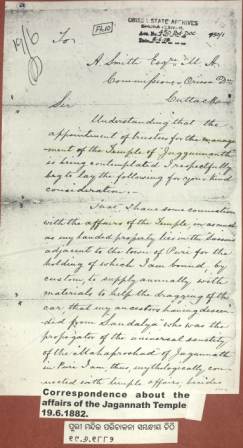 19/6
FL10
ORISSA STATE ARCHIVES
To
A. Smith Esqre. M. A.
Commissioner Orissa Dn
Cuttack
Sir
Understanding that the
appointment of trustees for the manage-
ment of the Temple of Juggunnauth
is being contemplated I respectfully
beg to lay the following for your kind
consideration.
That I have some connection
with the affairs of the Temple, in as much
as my landed property lies in the
adjacent to the town of Puri for the
holding of which I am bound, by
custom, to supply annually with
materials to help the dragging of the
car, that my ancestors having descen-
ded from Sandalya who was the
propagator of the universal sanctity
of the Mahaprashad of Jagannath
in Puri I am, thus, mythologically con-
nected with temple affairs, besides
Correspondence about the
affairs of the Jagannath Temple
19.6.1882.
ପୁରୀ ମନ୍ଦିର ପରିଚାଳନା ସମ୍ବନ୍ଧୀୟ ଚିଠି